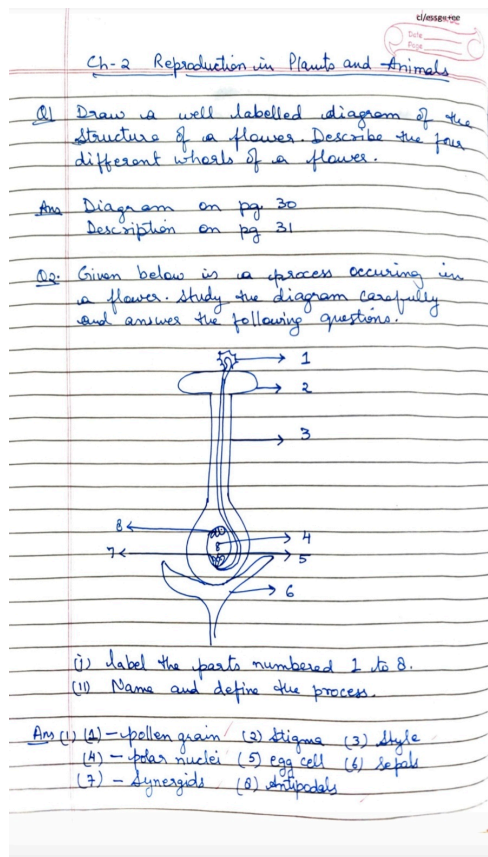 classmate
Date
Page
Ch-2 Reproduction in Plants and Animals
Q1 Draw a well labelled diagram of the
structure of a flower. Describe the four
different whorls of a flower.
Ans Diagram on pg. 30
Description on pg 31
Q2. Given below is a process occuring in
a flower. Study the diagram carefully
and answer the following questions.
1
2
3
8
4
7
5
6
(i) label the parts numbered 1 to 8.
(ii) Name and define the process.
Ans (i) (1) - pollen grain (2) Stigma (3) Style
(4) - polar nuclei (5) egg cell (6) Sepals
(7) - Synergids (8) Antipodals